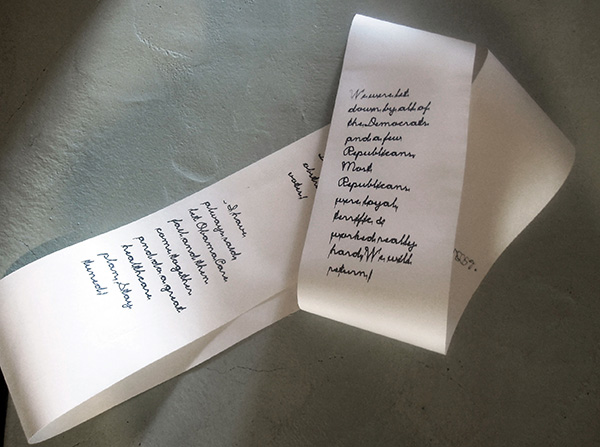 We were let
down by all of
the Democrats
and a few
Republicans.
Most
Republicans
were loyal,
terrific &
worked really
hard. We will
return!
voters!
I have
always said,
let ObamaCare
fail and then
come together
and do a great
healthcare
plan. Stay
tuned!